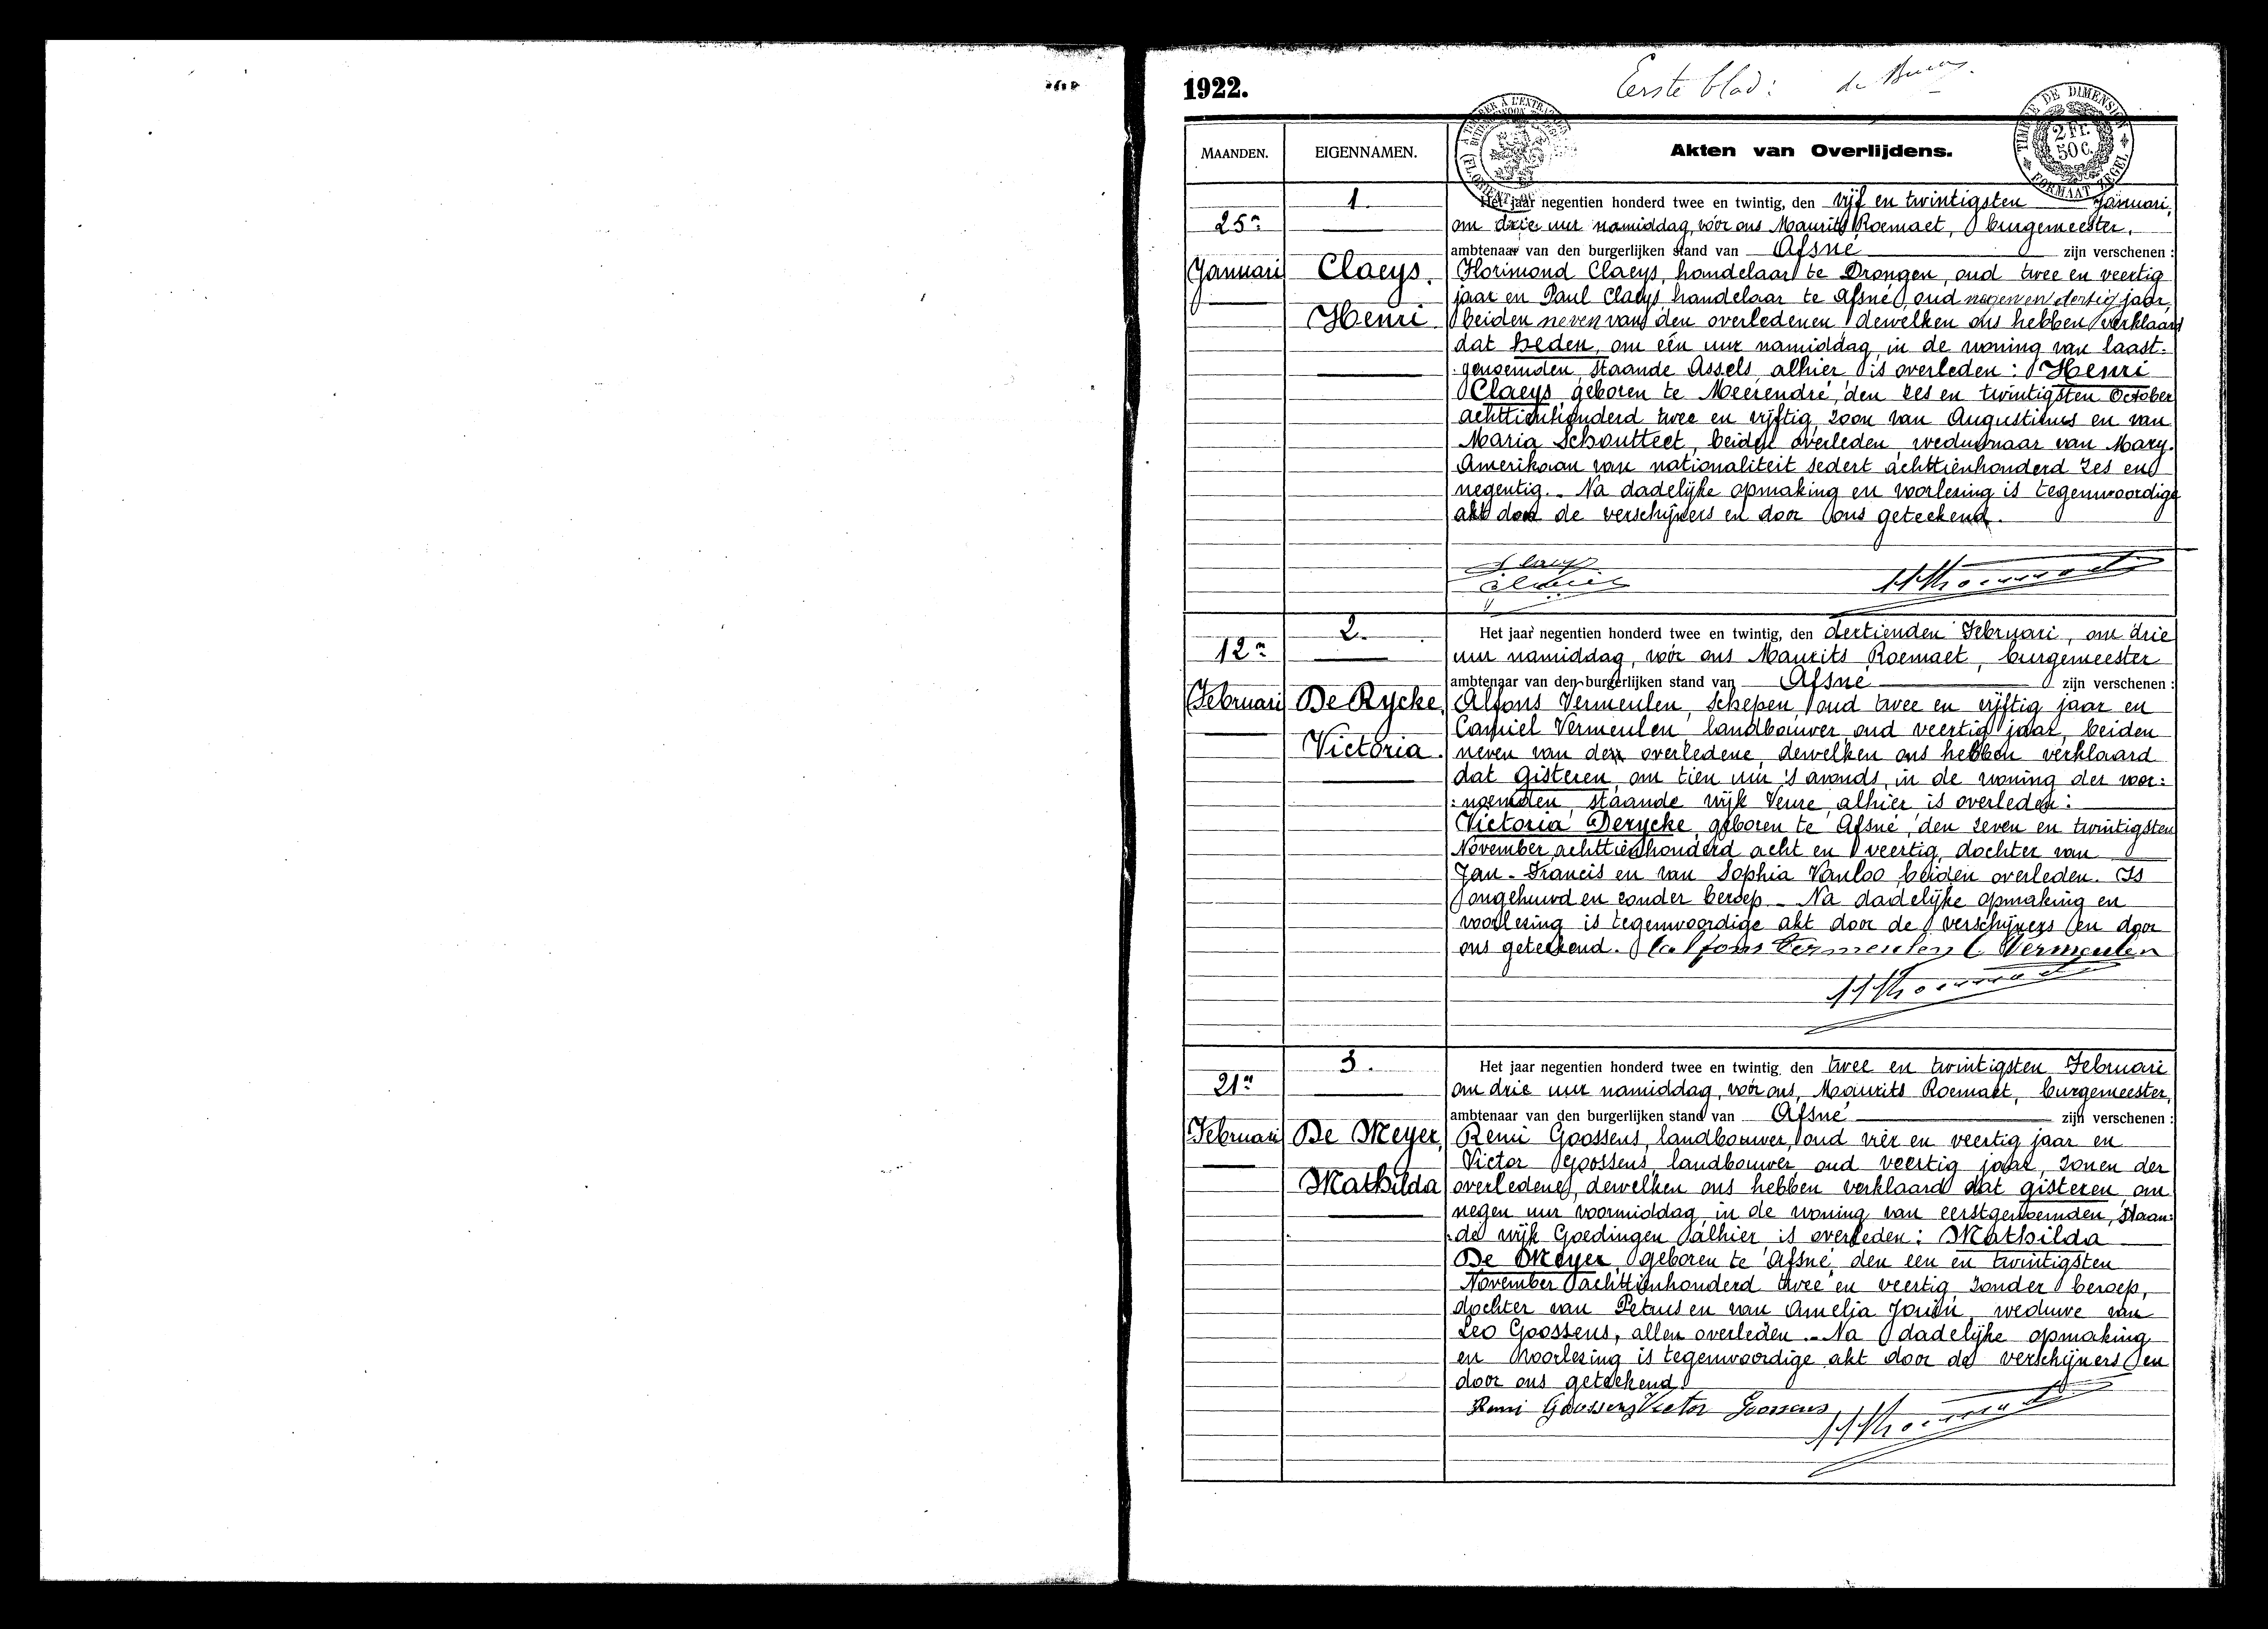 1922.
Eerste blad: de
TIMBRE DE DIMENSION
2 Fr.
50 C.
FORMAAT ZEGEL
MAANDEN. EIGENNAMEN. Akten van Overlijdens.
1.
25n
Januari
Claeys.
Henri
Het jaar negentien honderd twee en twintig, den vijf en twintigsten Januari,
om drie uur namiddag, vóór ons Maurits Roemaet, burgemeester,
ambtenaar van den burgerlijken stand van Afsné zijn verschenen :
Florimond Claeys, handelaar te Drongen, oud twee en veertig
jaar en Paul Claeys handelaar te Afsné, oud negen en dertig jaar
beiden neven van den overledenen dewelken ons hebben verklaard
dat heden, om één uur namiddag, in de woning van laast:
:genoemden, staande Assels alhier is overleden : Henri
Claeys, geboren te Meerendré, den zes en twintigsten October
achttienhonderd twee en vijftig, zoon van Augustinus en van
Maria Schoutteet, beiden overleden, weduwnaar van Mary.
Amerikaan van nationaliteit sedert achttienhonderd zes en
negentig. _ Na dadelijke opmaking en voorlezing is tegenwoordige
akt door de verschijners en door ons geteekend.
2.
12n
Februari
De Rycke,
Victoria.
Het jaar negentien honderd twee en twintig, den dertienden Februari, om drie
uur namiddag, vóór ons Maurits Roemaet, burgemeester
ambtenaar van den burgerlijken stand van Afsné zijn verschenen :
Alfons Vermeulen, Schepen, oud twee en vijftig jaar en
Camiel Vermeulen landbouwer, oud veertig jaar, beiden
neven van den overledene, dewelken ons hebben verklaard
dat gisteren, om tien uur 's avonds, in de woning der voor:
:noemden, staande wijk Veure, alhier is overleden :
Victoria Derycke, geboren te Afsné, den zeven en twintigsten
November achttienhonderd acht en veertig, dochter van
Jan - Francis en van Sophia Vanloo, beiden overleden. Is
ongehuwd en zonder beroep _ Na dadelijke opmaking en
voorlezing is tegenwoordige akt door de verschijners en door
ons geteekend. Alfons Vermeulen C Vermeulen
3.
21n
Februari
De Meyer,
Mathilda
Het jaar negentien honderd twee en twintig, den twee en twintigsten Februari
om drie uur namiddag, vóór ons, Maurits Roemaet, burgemeester,
ambtenaar van den burgerlijken stand van Afsné zijn verschenen :
Remi Goossens, landbouwer, oud vier en veertig jaar en
Victor Goossens, landbouwer, oud veertig jaar, zonen der
overledene, dewelken ons hebben verklaard dat gisteren, om
negen uur voormiddag, in de woning van eerstgenoemden, staan:
:de wijk Goedingen alhier is overleden : Mathilda
De Meyer, geboren te Afsné, den een en twintigsten
November achttienhonderd twee en veertig, zonder beroep,
dochter van Petrus en van Amelia, weduwe van
Leo Goossens, allen overleden. _ Na dadelijke opmaking
en voorlezing is tegenwoordige akt door de verschijners en
door ons geteekend.
Remi Goossens Victor Goossens